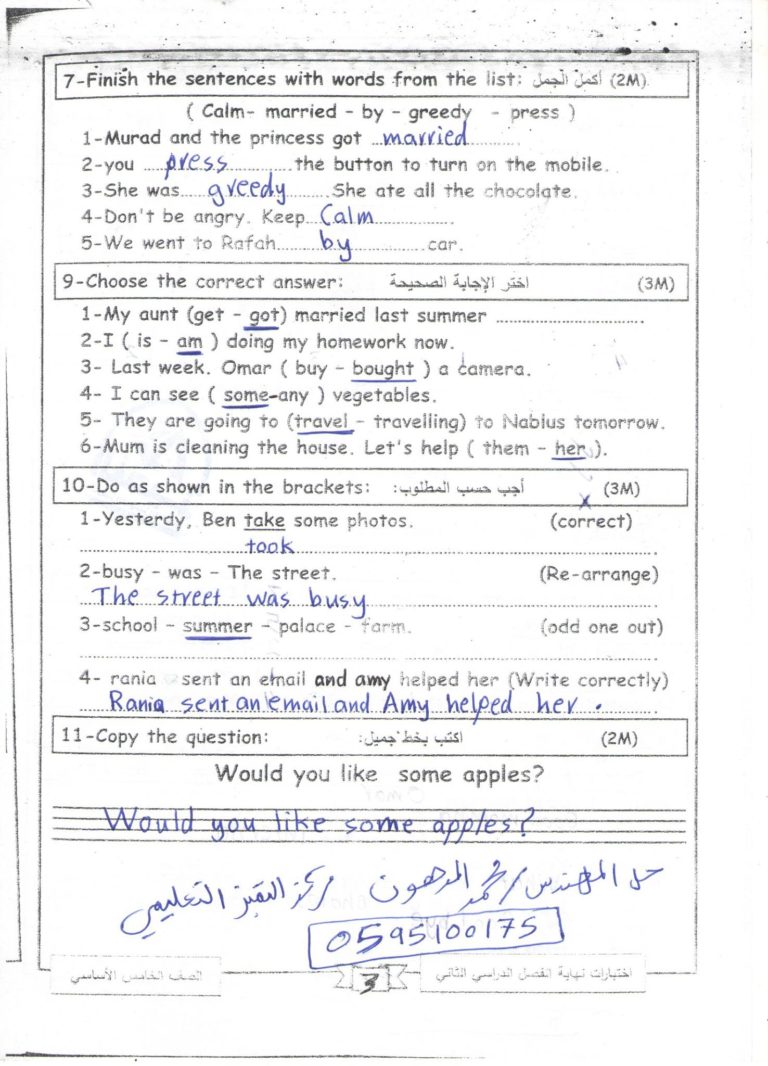 7-Finish the sentences with words from the list: أكمل الجمل (2M)
( Calm- married - by - greedy - press )
1-Murad and the princess got ...married...
2-you ...press... the button to turn on the mobile.
3-She was...greedy... She ate all the chocolate.
4-Don't be angry. Keep...Calm...
5-We went to Rafah...by...car.
9-Choose the correct answer: اختر الإجابة الصحيحة (3M)
1-My aunt (get - got) married last summer ...
2-I ( is - am ) doing my homework now.
3- Last week. Omar ( buy - bought ) a camera.
4- I can see ( some-any ) vegetables.
5- They are going to (travel - travelling) to Nablus tomorrow.
6-Mum is cleaning the house. Let's help ( them - her ).
10-Do as shown in the brackets: أجب حسب المطلوب: (3M)
1-Yesterdy, Ben take some photos. (correct)
took
2-busy - was - The street. (Re-arrange)
The street was busy
3-school - summer - palace - farm. (odd one out)
4- rania sent an email and amy helped her (Write correctly)
Rania sent an email and Amy helped her .
11-Copy the question: اكتب بخط جميل: (2M)
Would you like some apples?
Would you like some apples?
حل المهندس/ محمد المدهون مركز التميز التعليمي
0595100175
اختبارات نهاية الفصل الدراسي الثاني 3 الصف الخامس الأساسي